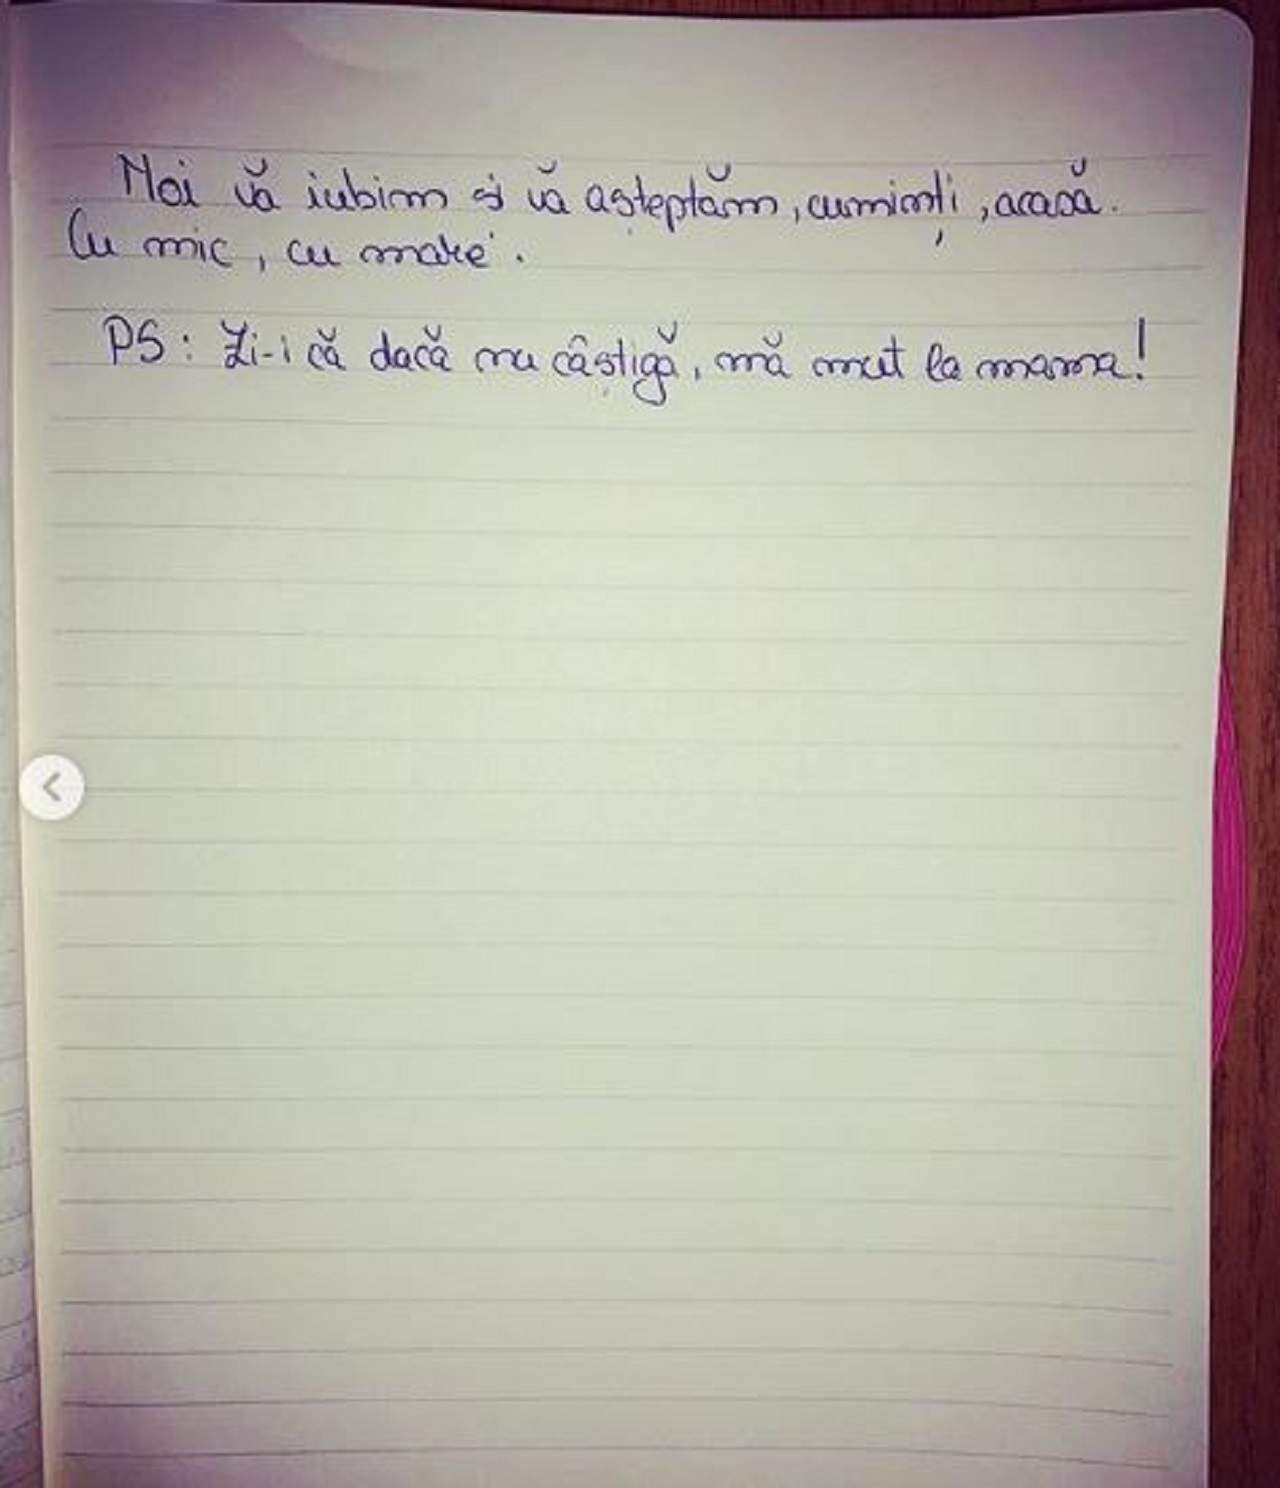 Noi vă iubim și vă așteptăm, cuminți, acasă.
Cu mic, cu mare.
PS: Zi-i că dacă nu câștigă, mă mut la mama!